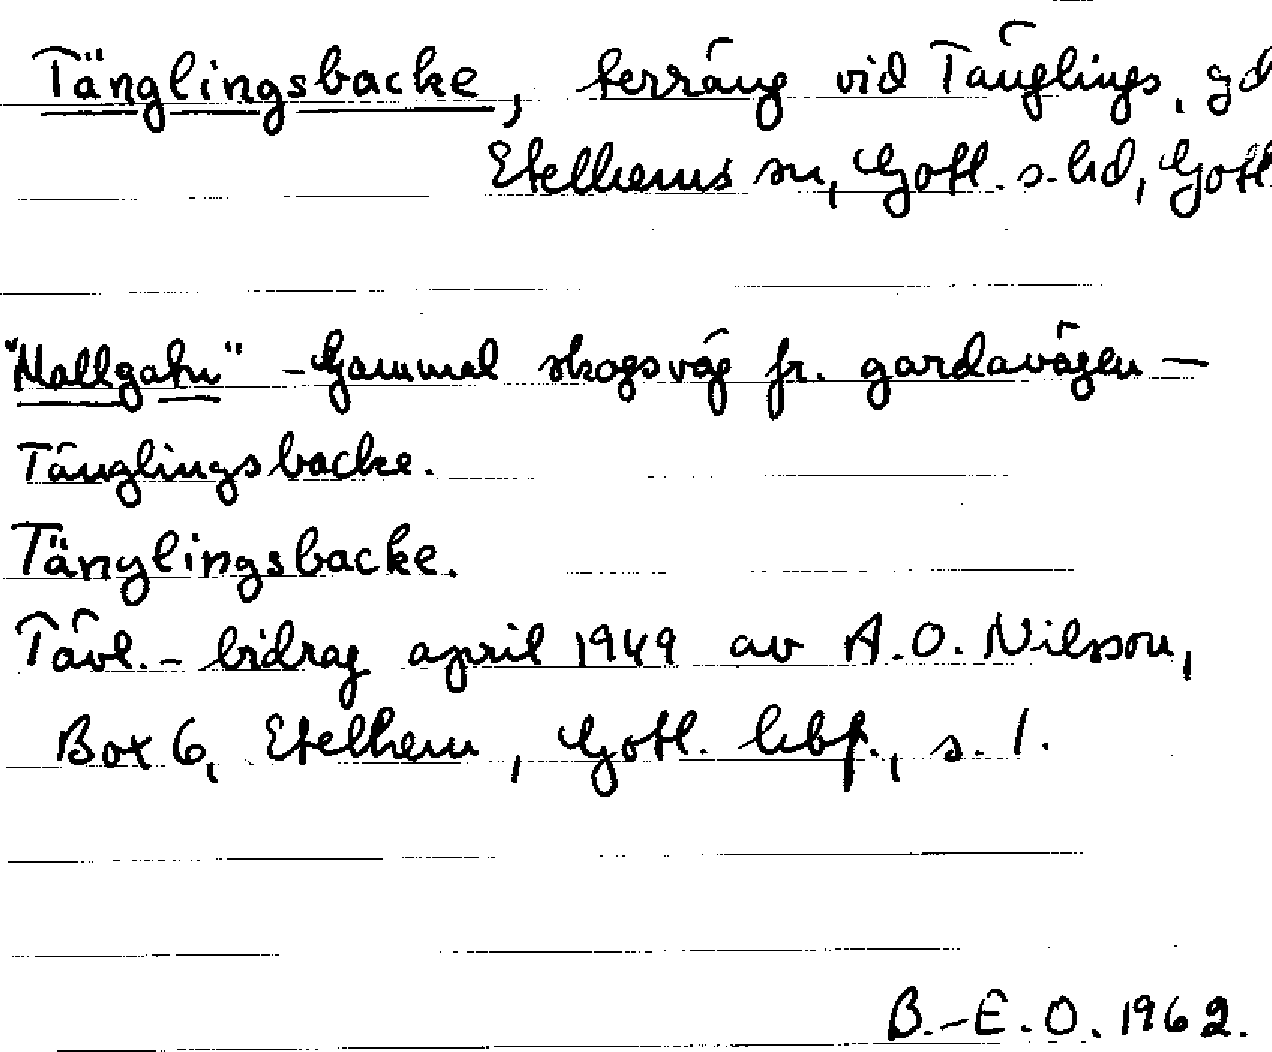 Tänglingsbacke, terräng vid Tänglings, gd
Etelhems sn, Gotl. s. hd, Gotl.
"Mallgatu" - Gammal skogsväg fr. gardavägen -
Tänglingsbacke.
Tänglingsbacke.
Tävl.- bidrag april 1949 av A.O. Nilsson,
Box 6, Etelhem, Gotl. hbf., s. 1.
B.-E.O. 1962.